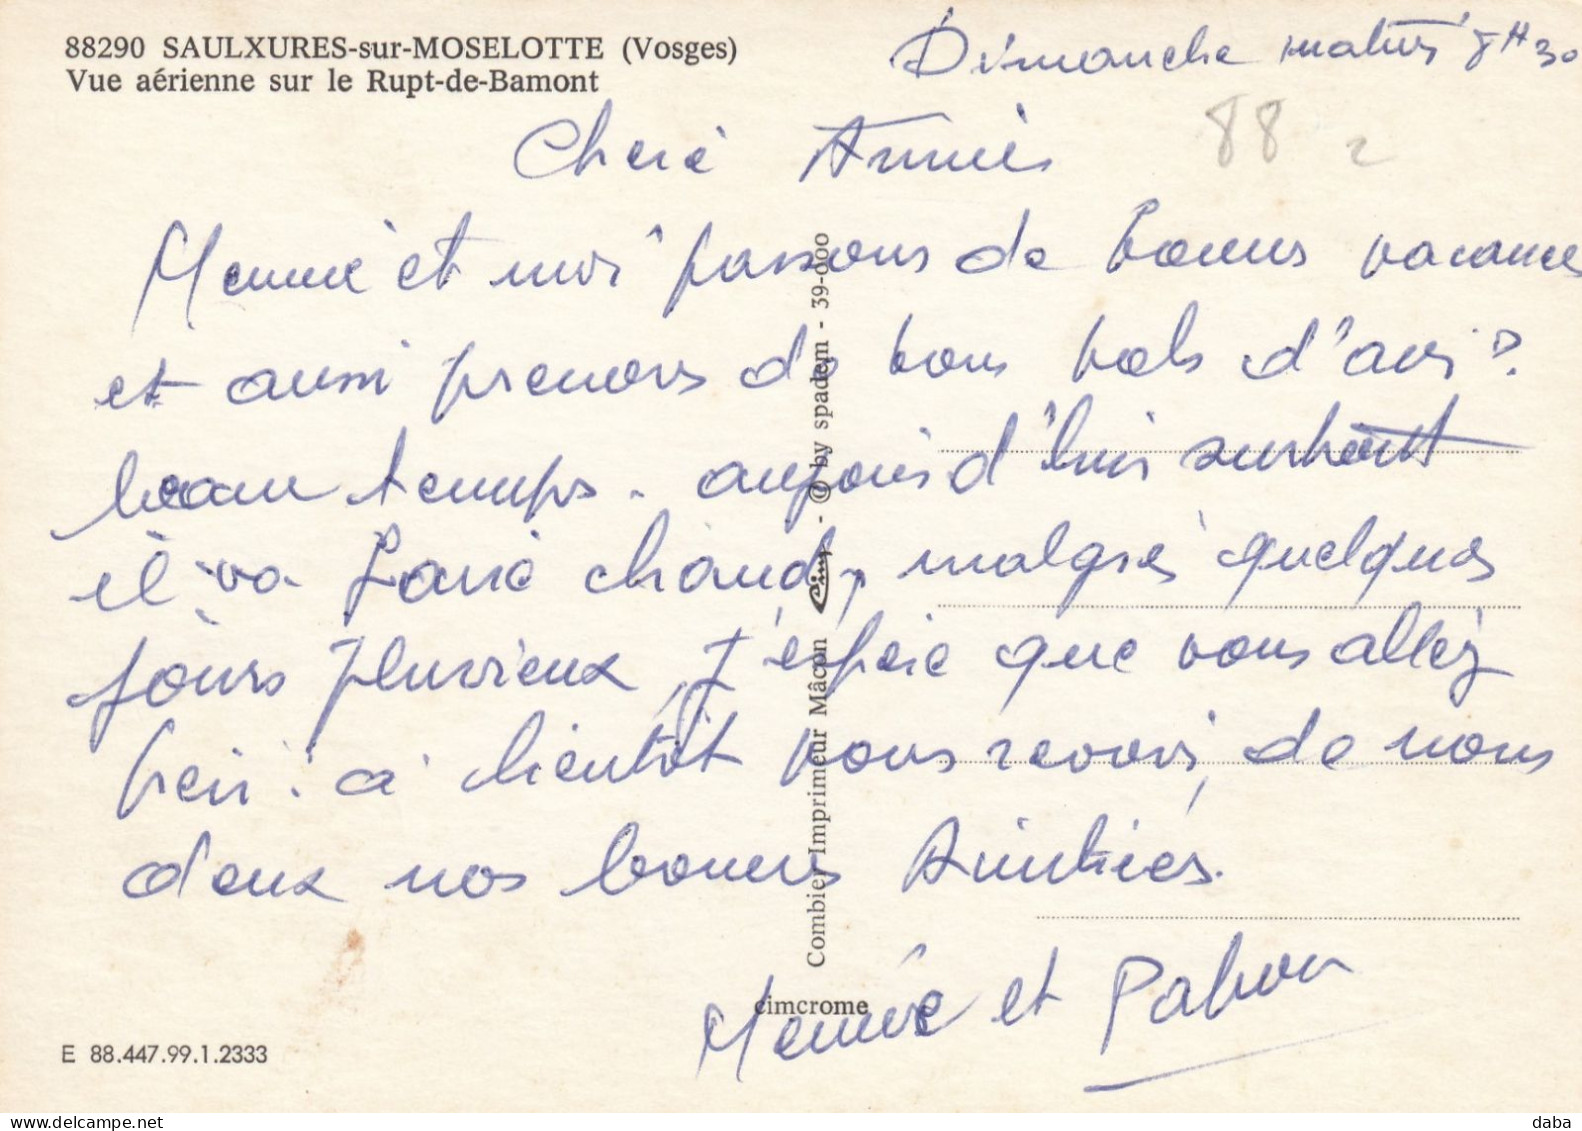 88290 SAULXURES-sur-MOSELOTTE (Vosges)
Vue aérienne sur le Rupt-de-Bamont
Dimanche matin 8H30
88 2
Chere Annie
et moi passons de bonnes vacances
et aussi prenons de bons bols d'air?
beau temps. aujourd'hui surtout
il va faire chaud, malgré quelques
jours pluvieux, j'espère que vous allez
bien. à bientôt vous revoir, de nous
deux nos bonnes Amitiés.
et
Combier Imprimeur Mâcon Cim - © by spadem - 39-000
cimcrome
E 88.447.99.1.2333
daba